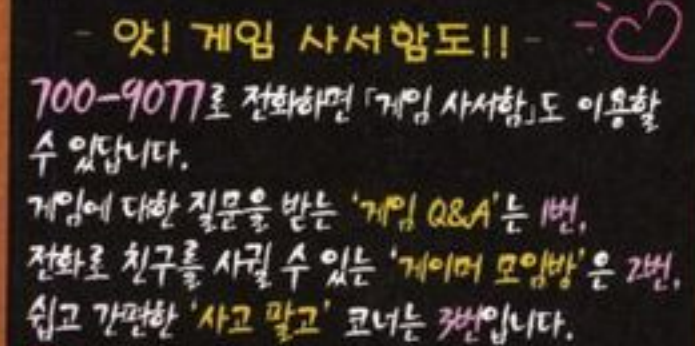 - 앗! 게임 사서함도!! -
700-9077로 전화하면 「게임 사서함」도 이용할
수 있답니다.
게임에 대한 질문을 받는 '게임 Q&A'는 1번,
전화로 친구를 사귈 수 있는 '게이머 모임방'은 2번,
쉽고 간편한 '사고 팔고' 코너는 3번입니다.